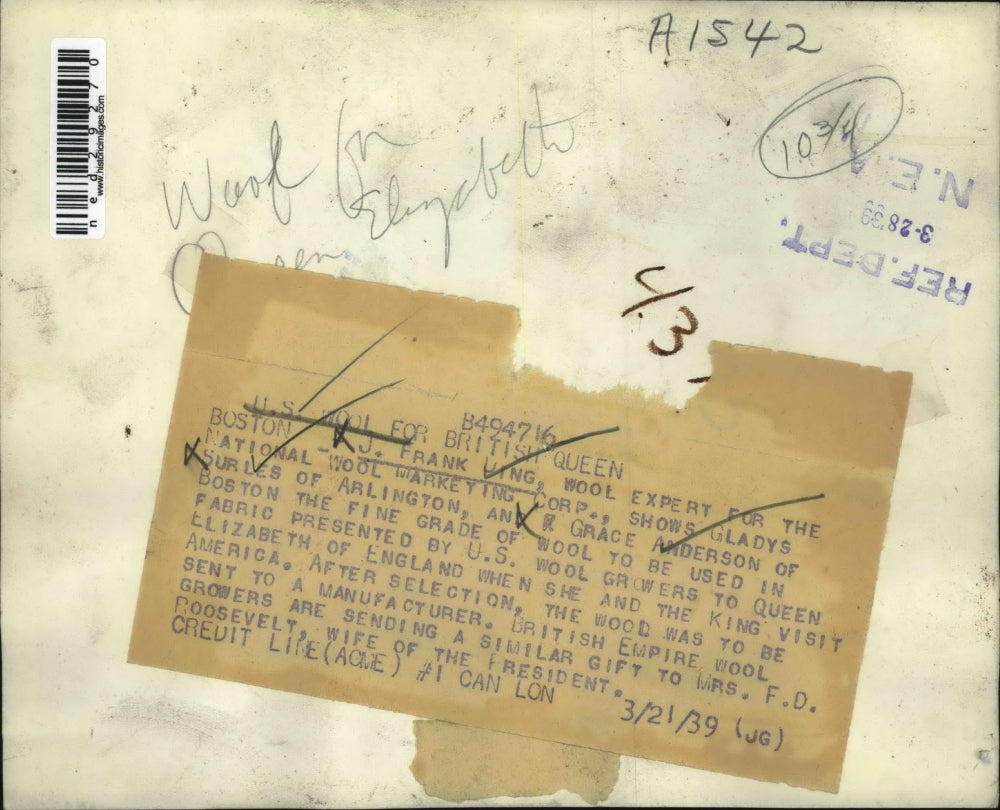 A1542
10 3/4
N.E.A.
3-28 39
REF. DEPT.
ned29270
www.historicimages.com
Wool for
Queen Elizabeth
4.3
B494716
U.S. WOOL FOR BRITISH QUEEN
BOSTON - J. FRANK KING, WOOL EXPERT FOR THE
NATIONAL WOOL MARKETING CORP., SHOWS GLADYS
SURLES OF ARLINGTON, AND GRACE ANDERSON OF
BOSTON THE FINE GRADE OF WOOL TO BE USED IN
FABRIC PRESENTED BY U.S. WOOL GROWERS TO QUEEN
ELIZABETH OF ENGLAND WHEN SHE AND THE KING VISIT
AMERICA. AFTER SELECTION, THE WOOD WAS TO BE
SENT TO A MANUFACTURER. BRITISH EMPIRE WOOL
GROWERS ARE SENDING A SIMILAR GIFT TO MRS. F.D.
ROOSEVELT, WIFE OF THE PRESIDENT.
CREDIT LINE(ACME) #1 CAN LON
3/21/39 (JG)